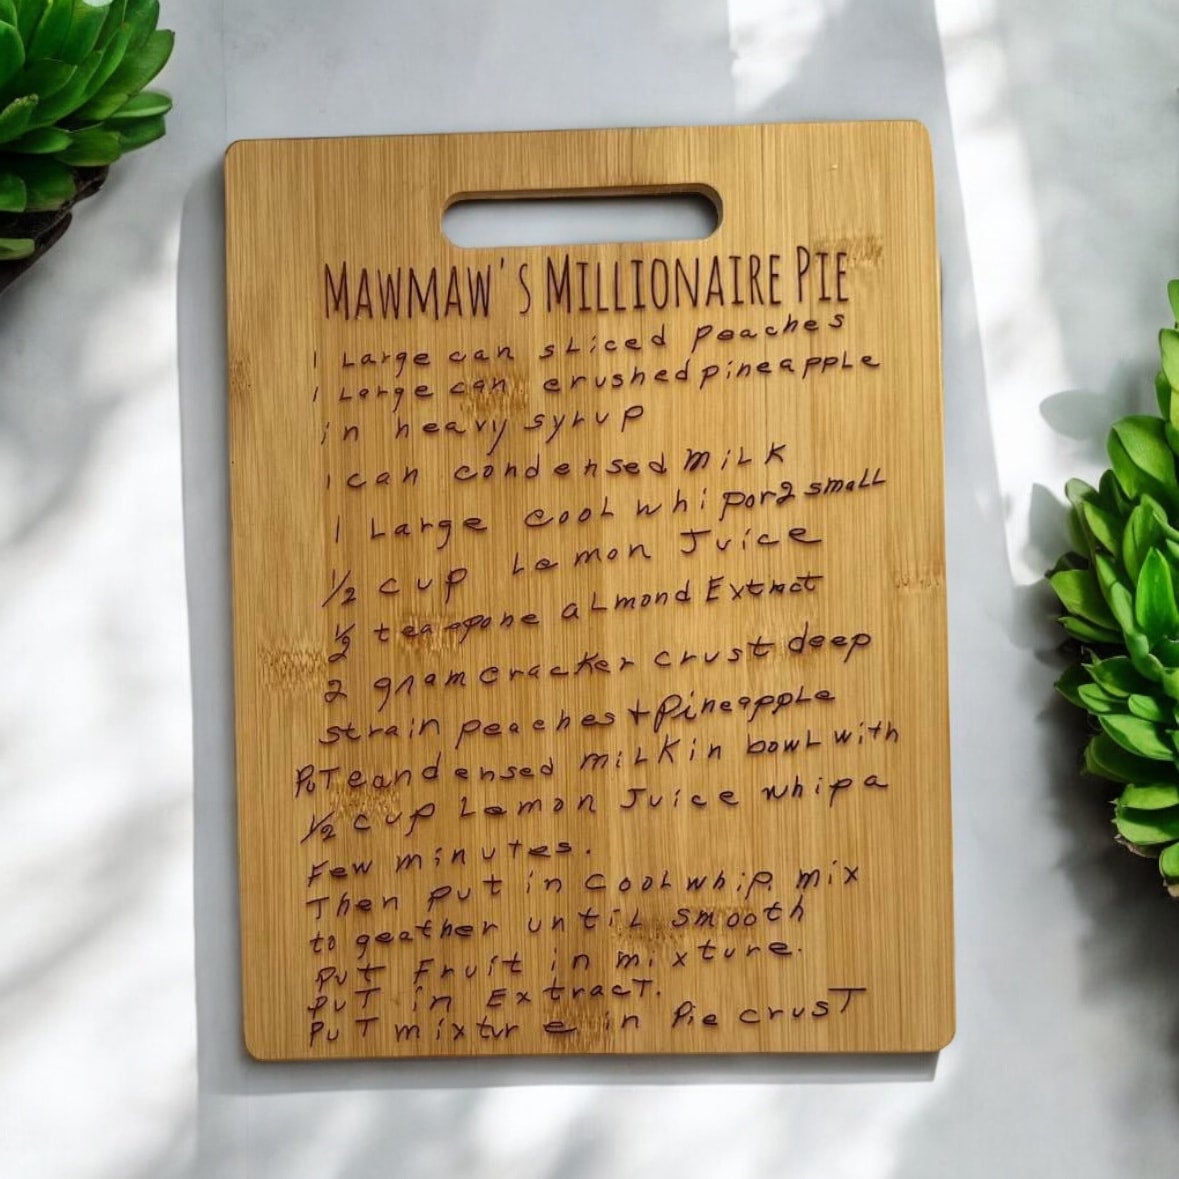 MAWMAW'S MILLIONAIRE PIE
1 Large can sliced peaches
1 Large can crushed pineapple
in heavy syrup
1 can condensed milk
1 Large cool whip or 2 small
1/2 cup Lemon Juice
1/2 teaspone almond Extract
2 gram cracker crust deep
strain peaches + pineapple
PuT condensed milk in bowl with
1/2 cup Lemon Juice whip a
Few minutes.
Then put in cool whip. mix
to geather until smooth
put Fruit in mixture.
puT in ExtracT.
PuT mixture in Pie crusT